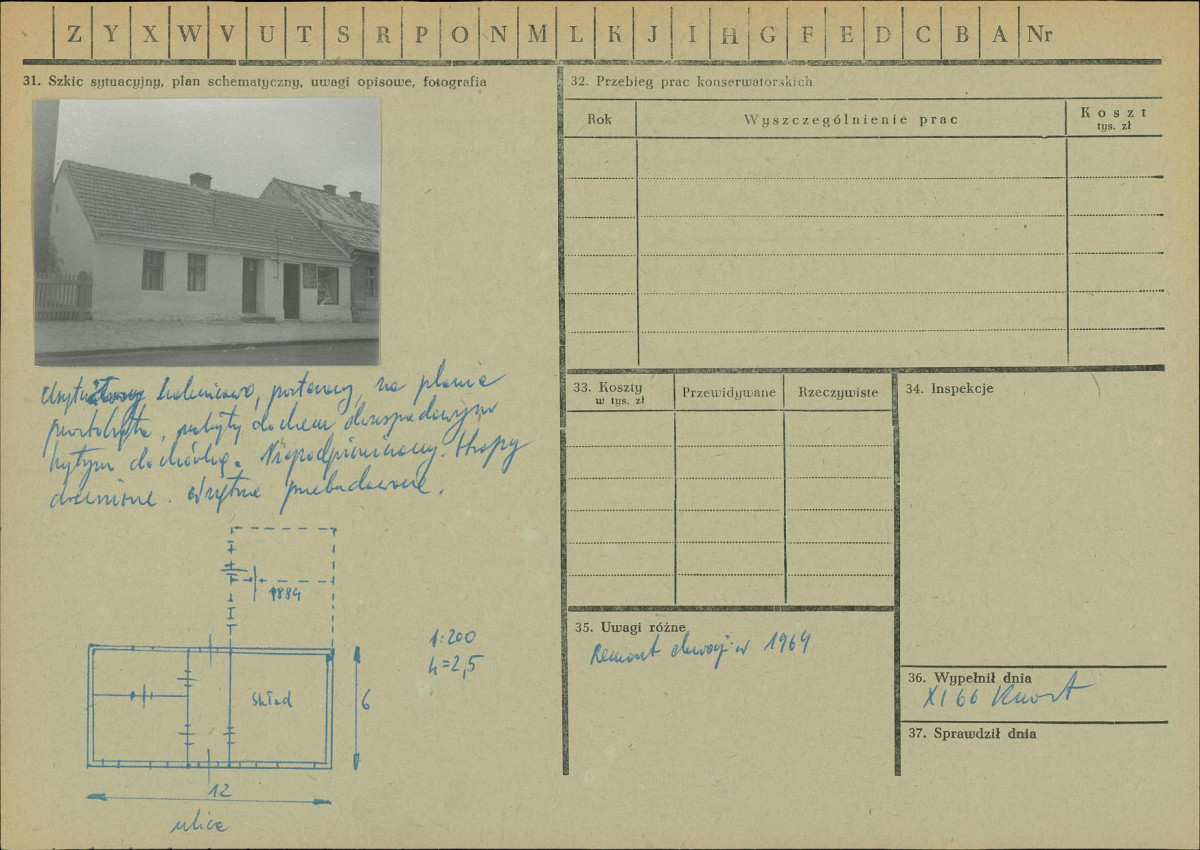 Z Y X W V U T S R P O N M L K J I H G F E D C B A Nr
31. Szkic sytuacyjny, plan schematyczny, uwagi opisowe, fotografia
kalenicowo, parterowy, na planie
prostokąta, nakryty dachem dwuspadowym
krytym dachówką. Niepodpiwniczony. Stropy
drewniane. Wnętrze przebudowane.
1884
1:200
h=2,5
skład
6
12
ulica
32. Przebieg prac konserwatorskich
Rok Wyszczególnienie prac Koszt
tys. zł
33. Koszty
w tys. zł
Przewidywane Rzeczywiste
34. Inspekcje
35. Uwagi różne
Remont w 1964
36. Wypełnił dnia
XI 66
37. Sprawdził dnia